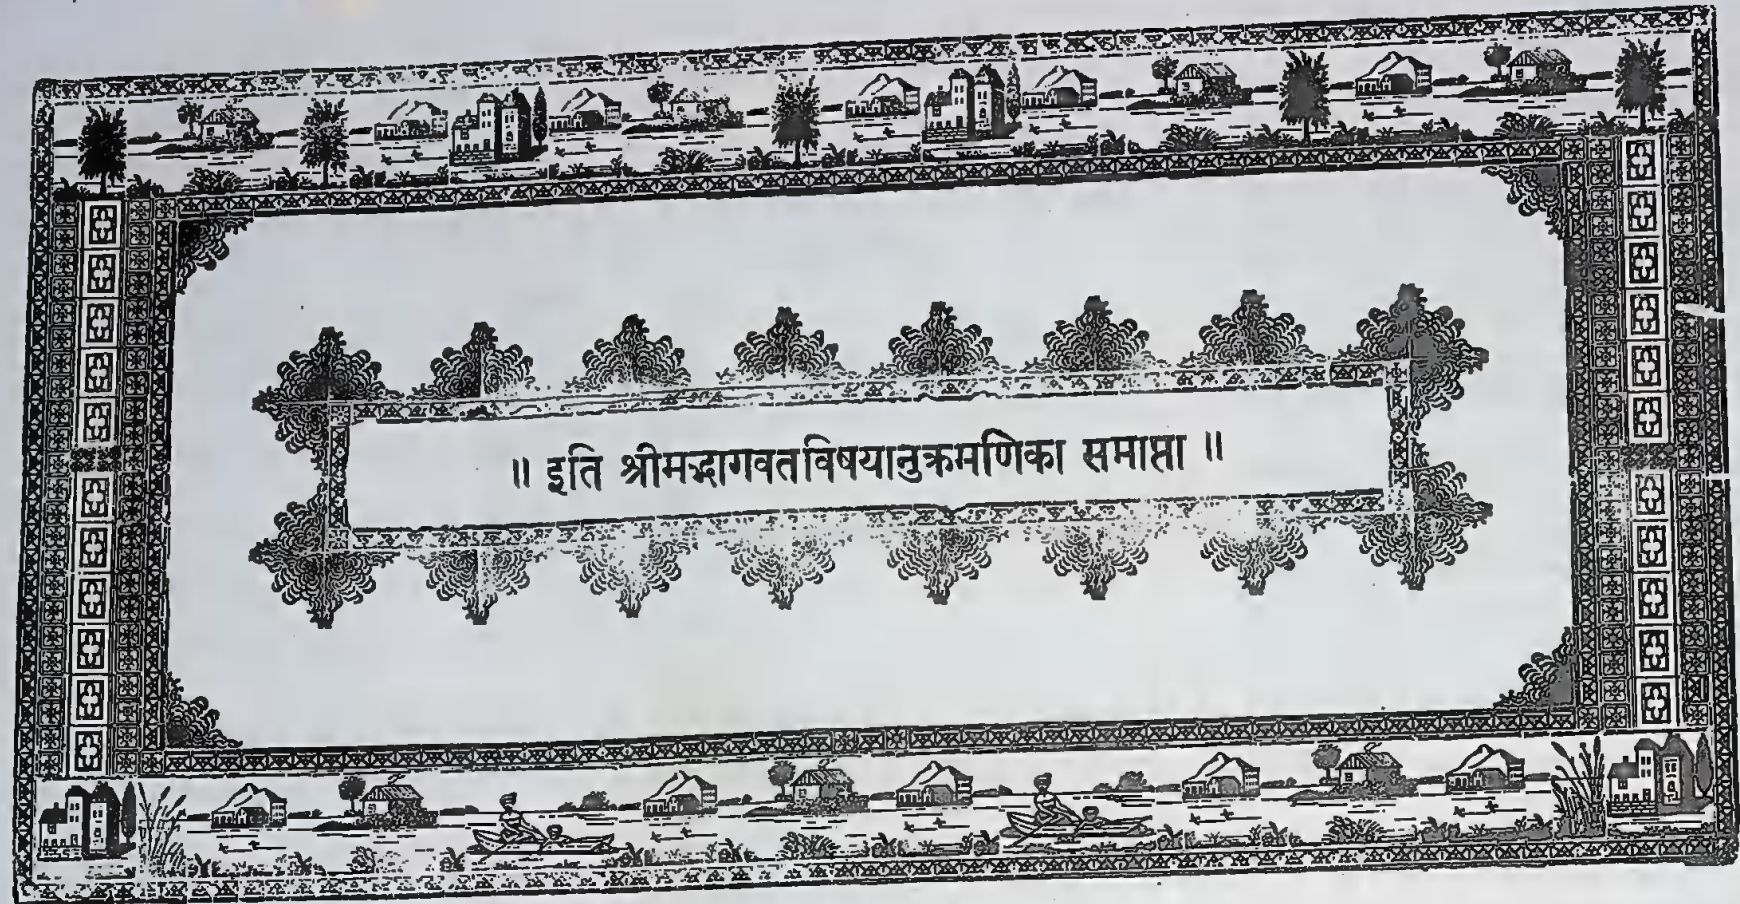 ॥ इति श्रीमद्भागवतविषयानुक्रमणिका समाप्ता ॥